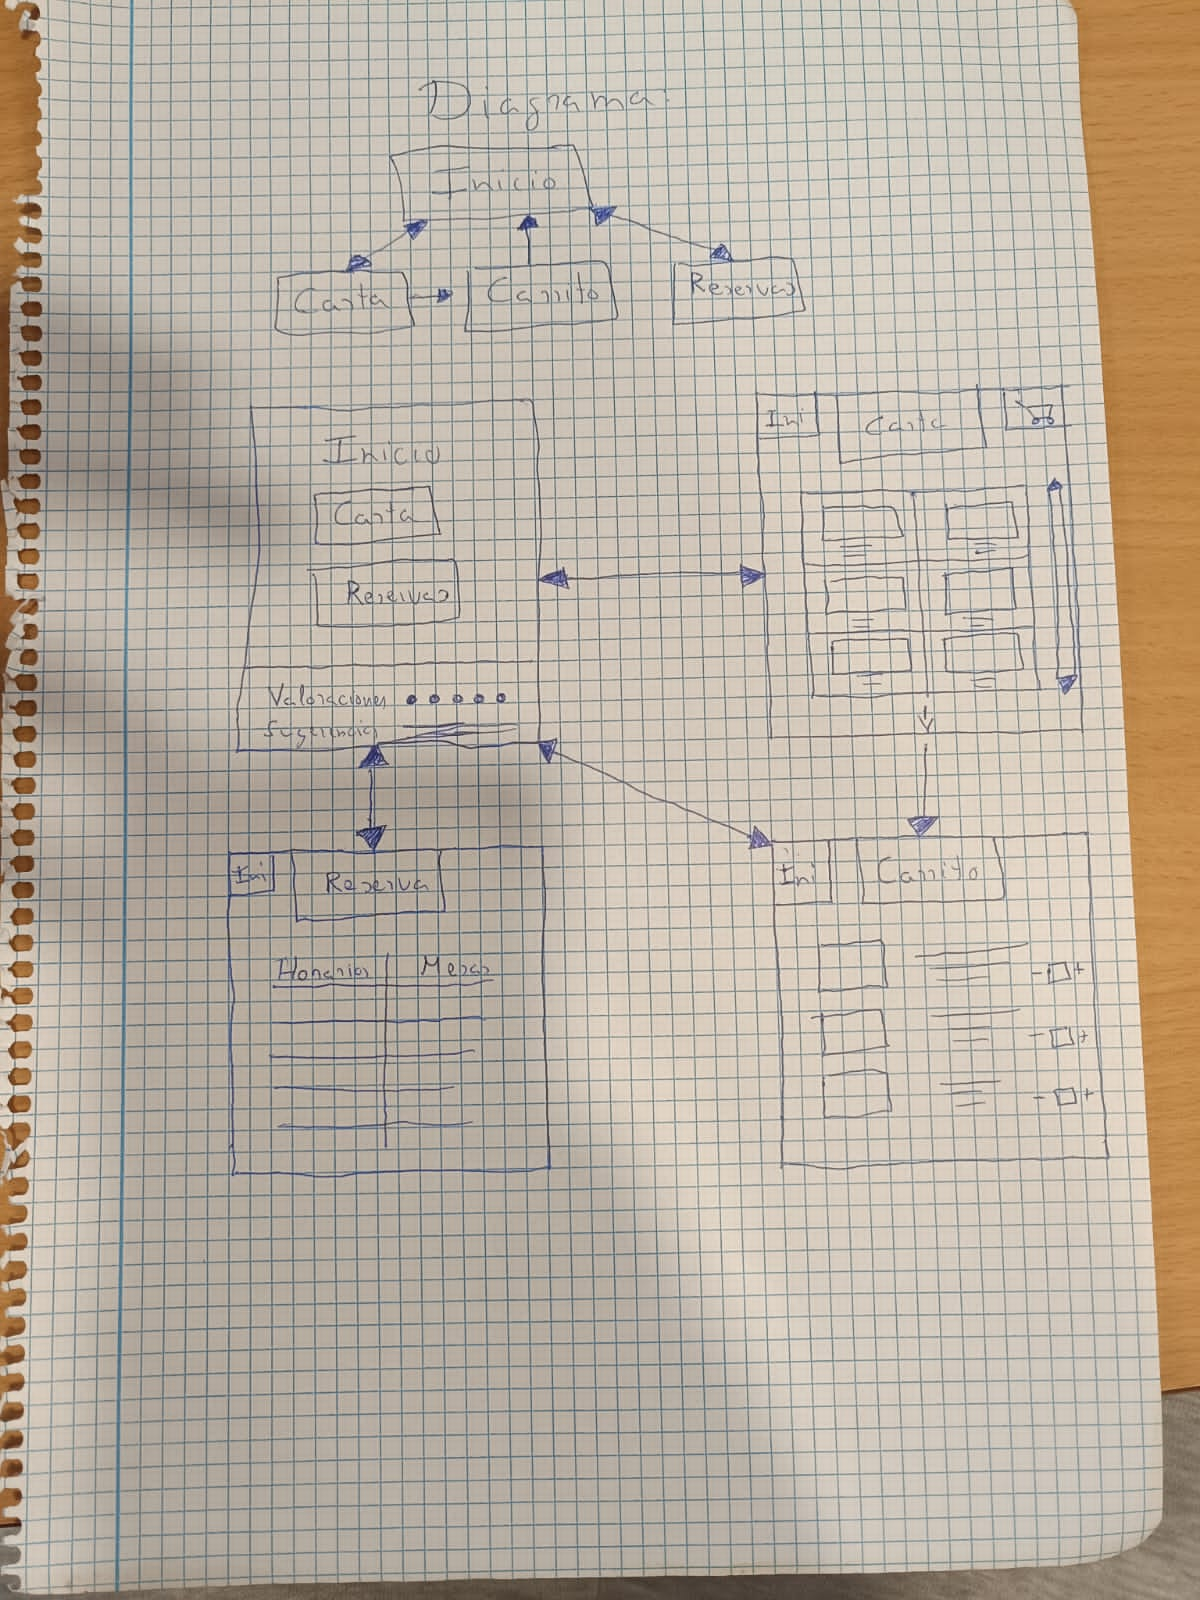 Diagrama:
Inicio
Carta
Carrito
Reservas
Inicio
Carta
Reservas
Valoraciones
Sugerencias
Ini
Carta
Ini
Reserva
Horarios Mesas
Ini
Carrito
- +
- +
- +